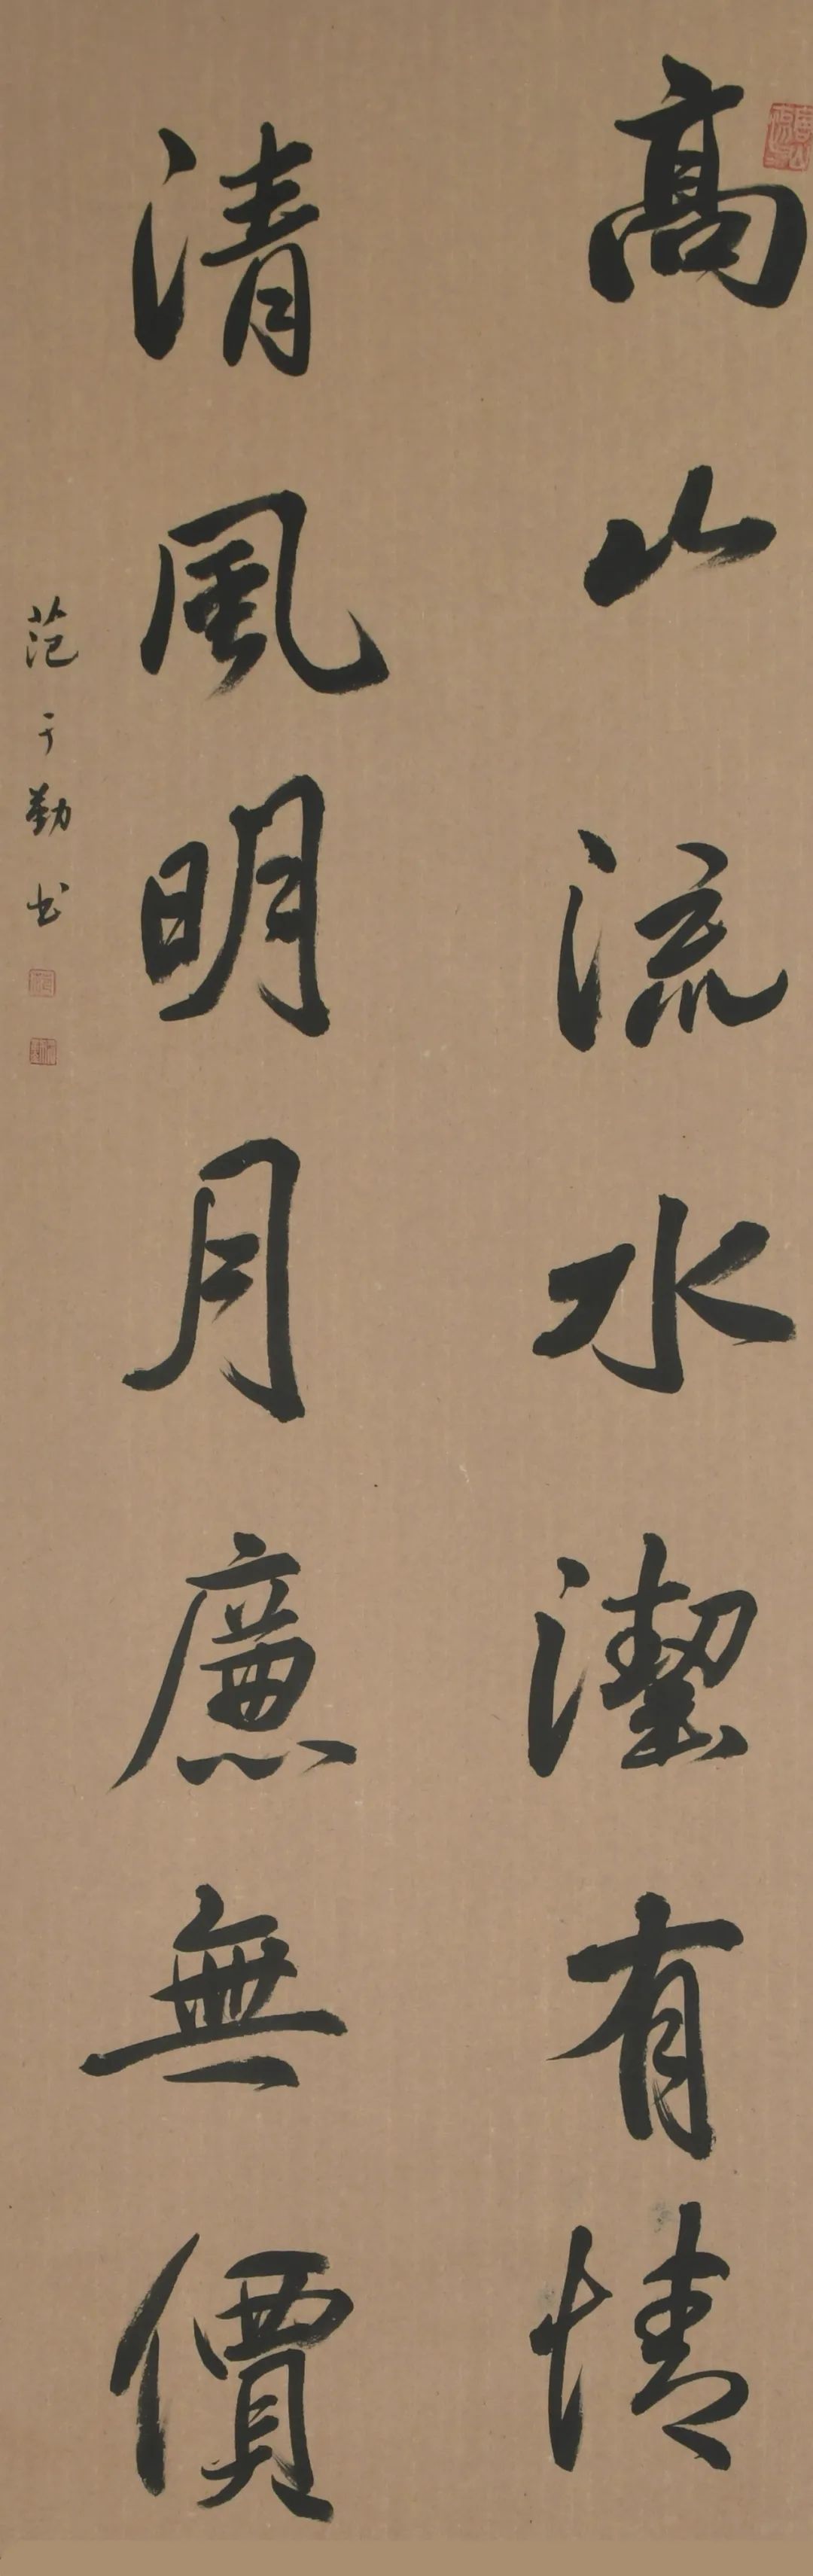 高山流水潔有情
清風明月廉無價
范于勤书